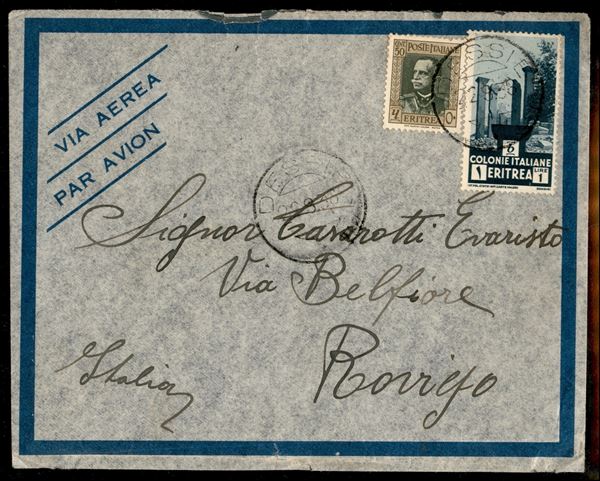 VIA AEREA
PAR AVION
POSTE ITALIANE
50
ERITREA
COLONIE ITALIANE
1 ERITREA LIRE 1
Signor Casarotti Evaristo
Via Belfiore
Rovigo
Italia